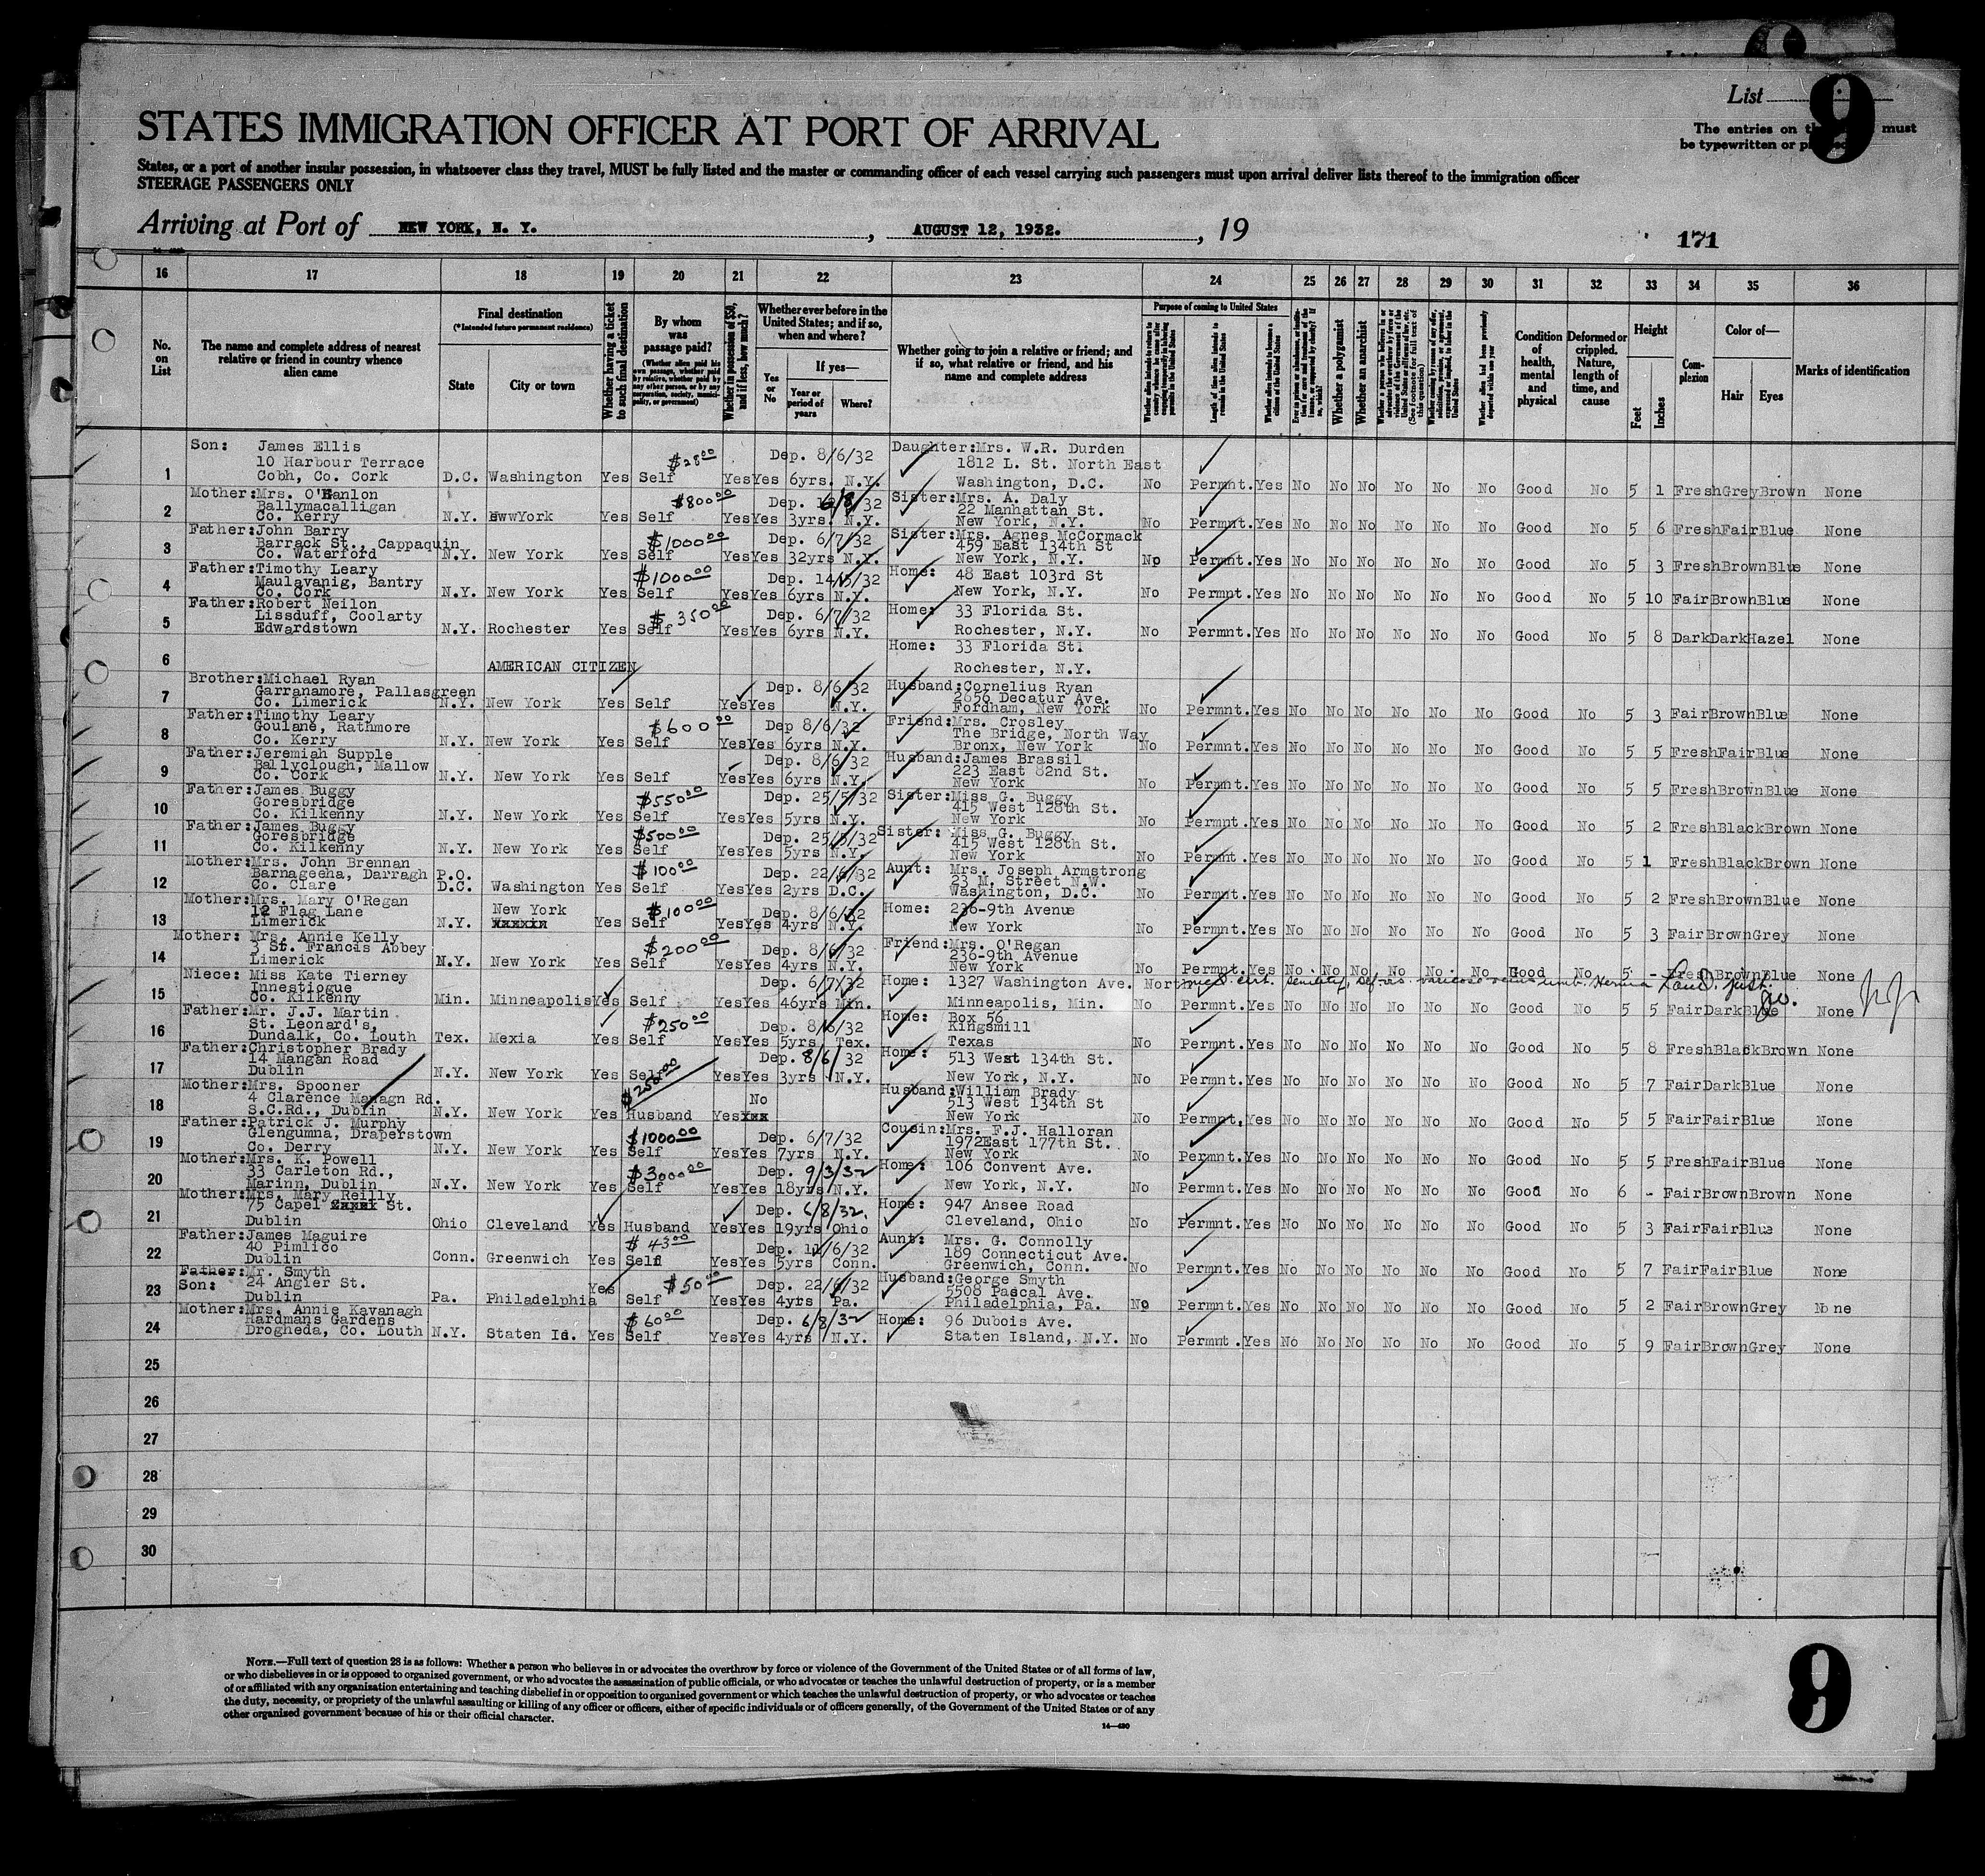 List 9
The entries on must
be typewritten or
STATES IMMIGRATION OFFICER AT PORT OF ARRIVAL
States, or a port of another insular possession, in whatsoever class they travel, MUST be fully listed and the master or commanding officer of each vessel carrying such passengers must upon arrival deliver lists thereof to the immigration officer
STEERAGE PASSENGERS ONLY
Arriving at Port of NEW YORK, N. Y. , AUGUST 12, 1932. , 19
171
16 17 18 19 20 21 22 23 24 25 26 27 28 29 30 31 32 33 34 35 36
No. on List
The name and complete address of nearest relative or friend in country whence alien came
Final destination
(*Intended future permanent residence)
State City or town
Whether having a ticket to such final destination
By whom was passage paid?
(Whether alien paid his own passage, whether paid by relative, whether paid by any other person, or by any corporation, society, municipality, or government)
Whether in possession of $50, and if less, how much?
Whether ever before in the United States; and if so, when and where?
Yes or No
If yes—
Year or period of years Where?
Whether going to join a relative or friend; and if so, what relative or friend, and his name and complete address
Purpose of coming to United States
Length of time alien intends to remain in the United States
Whether alien intends to become a citizen of the United States
Whether a polygamist
Whether an anarchist
Condition of health, mental and physical
Deformed or crippled. Nature, length of time, and cause
Height
Feet Inches
Complexion
Color of—
Hair Eyes
Marks of identification
Son: James Ellis Dep. 8/6/32 Daughter:Mrs. W.R. Durden
10 Harbour Terrace $28 00 1812 L. St. North East
1 Cobh, Co. Cork D.C. Washington Yes Self Yes Yes 6yrs. N.Y. Washington, D.C. No Permnt. Yes No No No No No No Good No 5 1 Fresh Grey Brown None
Mother:Mrs. O'Hanlon $800 00 Dep. 6/8/32 Sister:Mrs. A. Daly
Ballymacalligan 22 Manhattan St.
2 Co. Kerry N.Y. York Yes Self Yes Yes 3yrs. N.Y. New York, N.Y. No Permnt. Yes No No No No No No Good No 5 6 Fresh Fair Blue None
Father:John Barry $1000 00 Dep. 6/7/32 Sister:Mrs. Agnes McCormack
Barrack St., Cappaquin 459 East 134th St
3 Co. Waterford N.Y. New York Yes Self Yes Yes 32yrs N.Y. New York, N.Y. No Permnt. Yes No No No No No No Good No 5 3 Fresh Brown Blue None
Father:Timothy Leary $1000 00 Dep. 14/5/32 Home: 48 East 103rd St
Maulavanig, Bantry
4 Co. Cork N.Y. New York Yes Self Yes Yes 6yrs N.Y. New York, N.Y. No Permnt. Yes No No No No No No Good No 5 10 Fair Brown Blue None
Father:Robert Neilon $350 00 Dep. 6/7/32 Home: 33 Florida St.
Lissduff, Coolarty
5 Edwardstown N.Y. Rochester Yes Self Yes Yes 6yrs N.Y. Rochester, N.Y. No Permnt. Yes No No No No No No Good No 5 8 Dark Dark Hazel None
Home: 33 Florida St.
6 AMERICAN CITIZEN Rochester, N.Y.
Brother:Michael Ryan Dep. 8/6/32 Husband:Cornelius Ryan
Garranamore, Pallasgreen 2656 Decatur Ave.
7 Co. Limerick N.Y. New York Yes Self Yes Yes N.Y. Fordham, New York No Permnt. Yes No No No No No No Good No 5 3 Fair Brown Blue None
Father:Timothy Leary $600 00 Dep 8/6/32 Friend:Mrs. Crosley
Goulane, Rathmore The Bridge, North Way
8 Co. Kerry N.Y. New York Yes Self Yes Yes 6yrs N.Y. Bronx, New York No Permnt. Yes No No No No No No Good No 5 5 Fresh Fair Blue None
Father:Jeremiah Supple Dep. 8/6/32 Husband:James Brassil
Ballyclough, Mallow 223 East 82nd St.
9 Co. Cork N.Y. New York Yes Self Yes Yes 6yrs N.Y. New York No Permnt. Yes No No No No No No Good No 5 5 Fresh Brown Blue None
Father:James Buggy $550 00 Dep. 25/5/32 Sister:Miss G. Buggy
Goresbridge 415 West 128th St.
10 Co. Kilkenny N.Y. New York Yes Self Yes Yes 5yrs N.Y. New York No Permnt. Yes No No No No No No Good No 5 2 Fresh Black Brown None
Father:James Buggy $500 00 Dep. 25/5/32 Sister: Miss G. Buggy
Goresbridge 415 West 128th St.
11 Co. Kilkenny N.Y. New York Yes Self Yes Yes 5yrs N.Y. New York No Permnt. Yes No No No No No No Good No 5 1 Fresh Black Brown None
Mother:Mrs. John Brennan $100 00 Dep. 22/6/32 Aunt: Mrs. Joseph Armstrong
Barnageeha, Darragh P.O. 23 M. Street N.W.
12 Co. Clare D.C. Washington Yes Self Yes Yes 2yrs D.C. Washington, D.C. No Permnt. Yes No No No No No No Good No 5 2 Fresh Brown Blue None
Mother:Mrs. Mary O'Regan New York $100 00 Dep. 8/6/32 Home: 236-9th Avenue
12 Flag Lane
13 Limerick N.Y. Yes Self Yes Yes 4yrs N.Y. New York No Permnt. Yes No No No No No No Good No 5 3 Fair Brown Grey None
Mother: Mrs. Annie Kelly $200 00 Dep. 8/6/32 Friend:Mrs. O'Regan
3 St. Francis Abbey 236-9th Avenue
14 Limerick N.Y. New York Yes Self Yes Yes 4yrs N.Y. New York No Permnt. Yes No No No No No No Good No 5 - Fresh Brown Blue None
Niece: Miss Kate Tierney Dep. 6/7/32 Home: 1327 Washington Ave. North med. cert. senility, varicose veins Hernia
Innestiogue
15 Co. Kilkenny Min. Minneapolis Yes Self Yes Yes 46yrs Min. Minneapolis, Min. No Permnt. Yes No No No No No No Good No 5 5 Fair Dark Blue None
Father:Mr. J.J. Martin $250 00 Dep. 8/6/32 Home: Box 56
St. Leonard's, Kingsmill
16 Dundalk, Co. Louth Tex. Mexia Yes Self Yes Yes 5yrs Tex. Texas No Permnt. Yes No No No No No No Good No 5 8 Fresh Black Brown None
Father:Christopher Brady Dep. 8/6/32 Home: 513 West 134th St.
14 Mangan Road
17 Dublin N.Y. New York Yes Self Yes Yes 3yrs N.Y. New York, N.Y. No Permnt. Yes No No No No No No Good No 5 7 Fair Dark Blue None
Mother:Mrs. Spooner $250 00 No Husband:William Brady
4 Clarence Managn Rd. 513 West 134th St
18 S.C.Rd., Dublin N.Y. New York Yes Husband Yes xxx New York No Permnt. Yes No No No No No No Good No 5 5 Fair Fair Blue None
Father:Patrick J. Murphy $1000 00 Dep. 6/7/32 Cousin:Mrs. F.J. Halloran
Glengumna, Draperstown 1972East 177th St.
19 Co. Derry N.Y. New York Yes Self Yes Yes 7yrs N.Y. New York No Permnt. Yes No No No No No No Good No 5 5 Fresh Fair Blue None
Mother:Mrs. K. Powell $3000 00 Dep. 9/3/32 Home: 106 Convent Ave.
33 Carleton Rd.,
20 Marinn, Dublin N.Y. New York Yes Self Yes Yes 18yrs N.Y. New York, N.Y. No Permnt. Yes No No No No No No Good No 6 - Fair Brown Brown None
Mother:Mrs. Mary Reilly Dep. 6/8/32. Home: 947 Ansee Road
75 Capel St.
21 Dublin Ohio Cleveland Yes Husband Yes Yes 19yrs Ohio Cleveland, Ohio No Permnt. Yes No No No No No No Good No 5 3 Fair Fair Blue None
Father:James Maguire $43 00 Dep. 11/6/32 Aunt: Mrs. G. Connolly
40 Pimlico 189 Connecticut Ave.
22 Dublin Conn. Greenwich Yes Self Yes Yes 5yrs Conn. Greenwich, Conn. No Permnt. Yes No No No No No No Good No 5 7 Fair Fair Blue None
Father:Mr. Smyth $50 00 Dep. 22/6/32 Husband:George Smyth
Son: 24 Angler St. 5508 Pascal Ave.
23 Dublin Pa. Philadelphia Yes Self Yes Yes 4yrs Pa. Philadelphia, Pa. No Permnt. Yes No No No No No No Good No 5 2 Fair Brown Grey None
Mother:Mrs. Annie Kavanagh $60 00 Dep. 6/8/32 Home: 96 Dubois Ave.
Hardmans Gardens
24 Drogheda, Co. Louth N.Y. Staten Is. Yes Self Yes Yes 4yrs N.Y. Staten Island, N.Y. No Permnt. Yes No No No No No No Good No 5 9 Fair Brown Grey None
25
26
27
28
29
30
NOTE.—Full text of question 28 is as follows: Whether a person who believes in or advocates the overthrow by force or violence of the Government of the United States or of all forms of law,
or who disbelieves in or is opposed to organized government, or who advocates the assassination of public officials, or who advocates or teaches the unlawful destruction of property, or is a member
of or affiliated with any organization entertaining and teaching disbelief in or opposition to organized government or which teaches the unlawful destruction of property, or who advocates or teaches
the duty, necessity, or propriety of the unlawful assaulting or killing of any officer or officers, either of specific individuals or of officers generally, of the Government of the United States or of any
other organized government because of his or their official character.
14—430
9